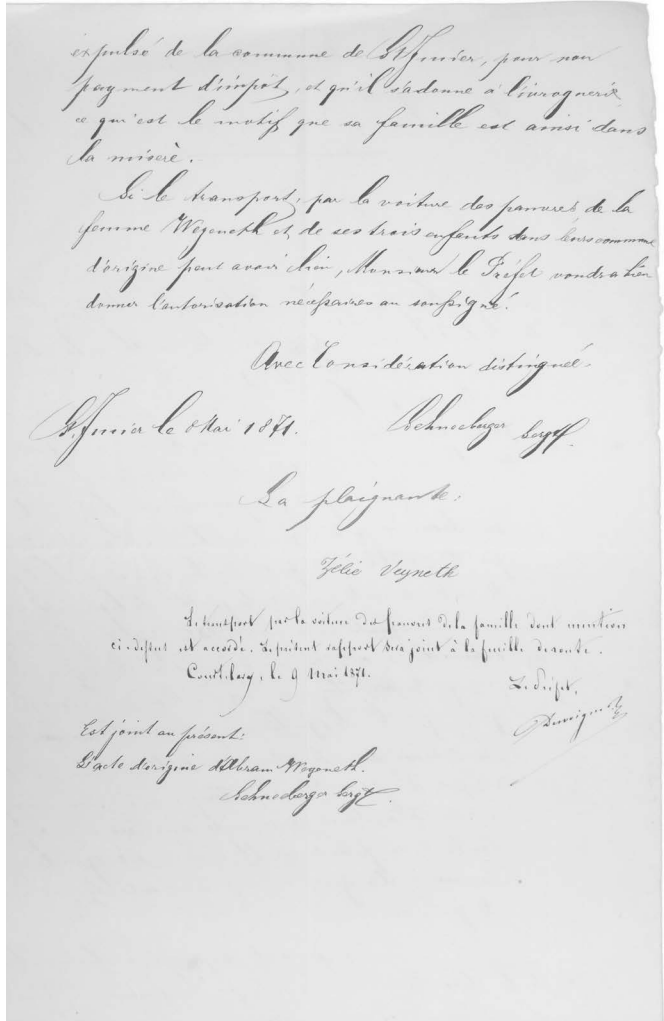 expulsé de la commune de St. Imier, pour non
payment d'impôt, et qu'il s'adonne à l'ivrognerie
ce qu'est le motif que sa famille est ainsi dans
la miserè.
Si le transport, par la voiture des pauvres, de la
femme Weyeneth et de ses trois enfants dans leurs commune
d'origine peut avoir lieu, Monsieur le Préfet voudra bien
donner l'autorisation nécessaires au soussigné.
Avec Considération distinguée.
St. Imier le Mai 1871.
Schneeberger sergt.
La plaignante:
Zélie Veyneth
Le transport par la voiture des pauvres de la famille dont mention
ci-dessus est accordé. Le présent rapport sera joint à la feuille de route.
Courtelary, le 9 Mai 1871.
Le Préfet,
Est joint au présent:
L'acte d'origine d'Abram Weyeneth.
Schneeberger sergt.